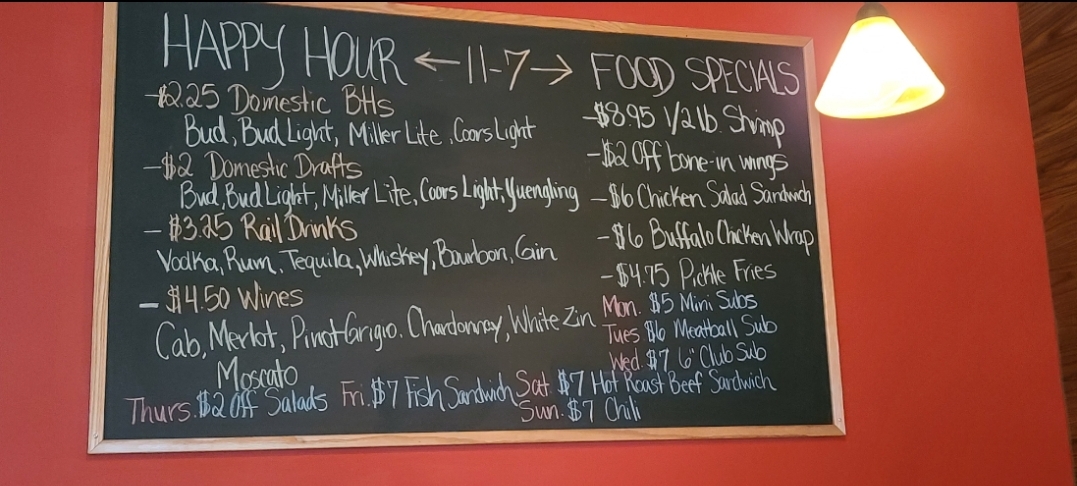 HAPPY HOUR ← 11-7 → FOOD SPECIALS
-$2.25 Domestic BHs
Bud, Bud Light, Miller Lite, Coors Light
-$2 Domestic Drafts
Bud, Bud Light, Miller Lite, Coors Light, Yuengling
- $3.25 Rail Drinks
Vodka, Rum, Tequila, Whiskey, Bourbon, Gin
- $4.50 Wines
Cab, Merlot, Pinot Grigio, Chardonnay, White Zin
Moscato
-$8.95 1/2 lb. Shrimp
-$2 Off bone-in wings
-$6 Chicken Salad Sandwich
-$6 Buffalo Chicken Wrap
-$4.75 Pickle Fries
Mon. $5 Mini Subs
Tues $6 Meatball Sub
Wed. $7 6" Club Sub
Thurs. $2 Off Salads Fri. $7 Fish Sandwich Sat. $7 Hot Roast Beef Sandwich
Sun. $7 Chili